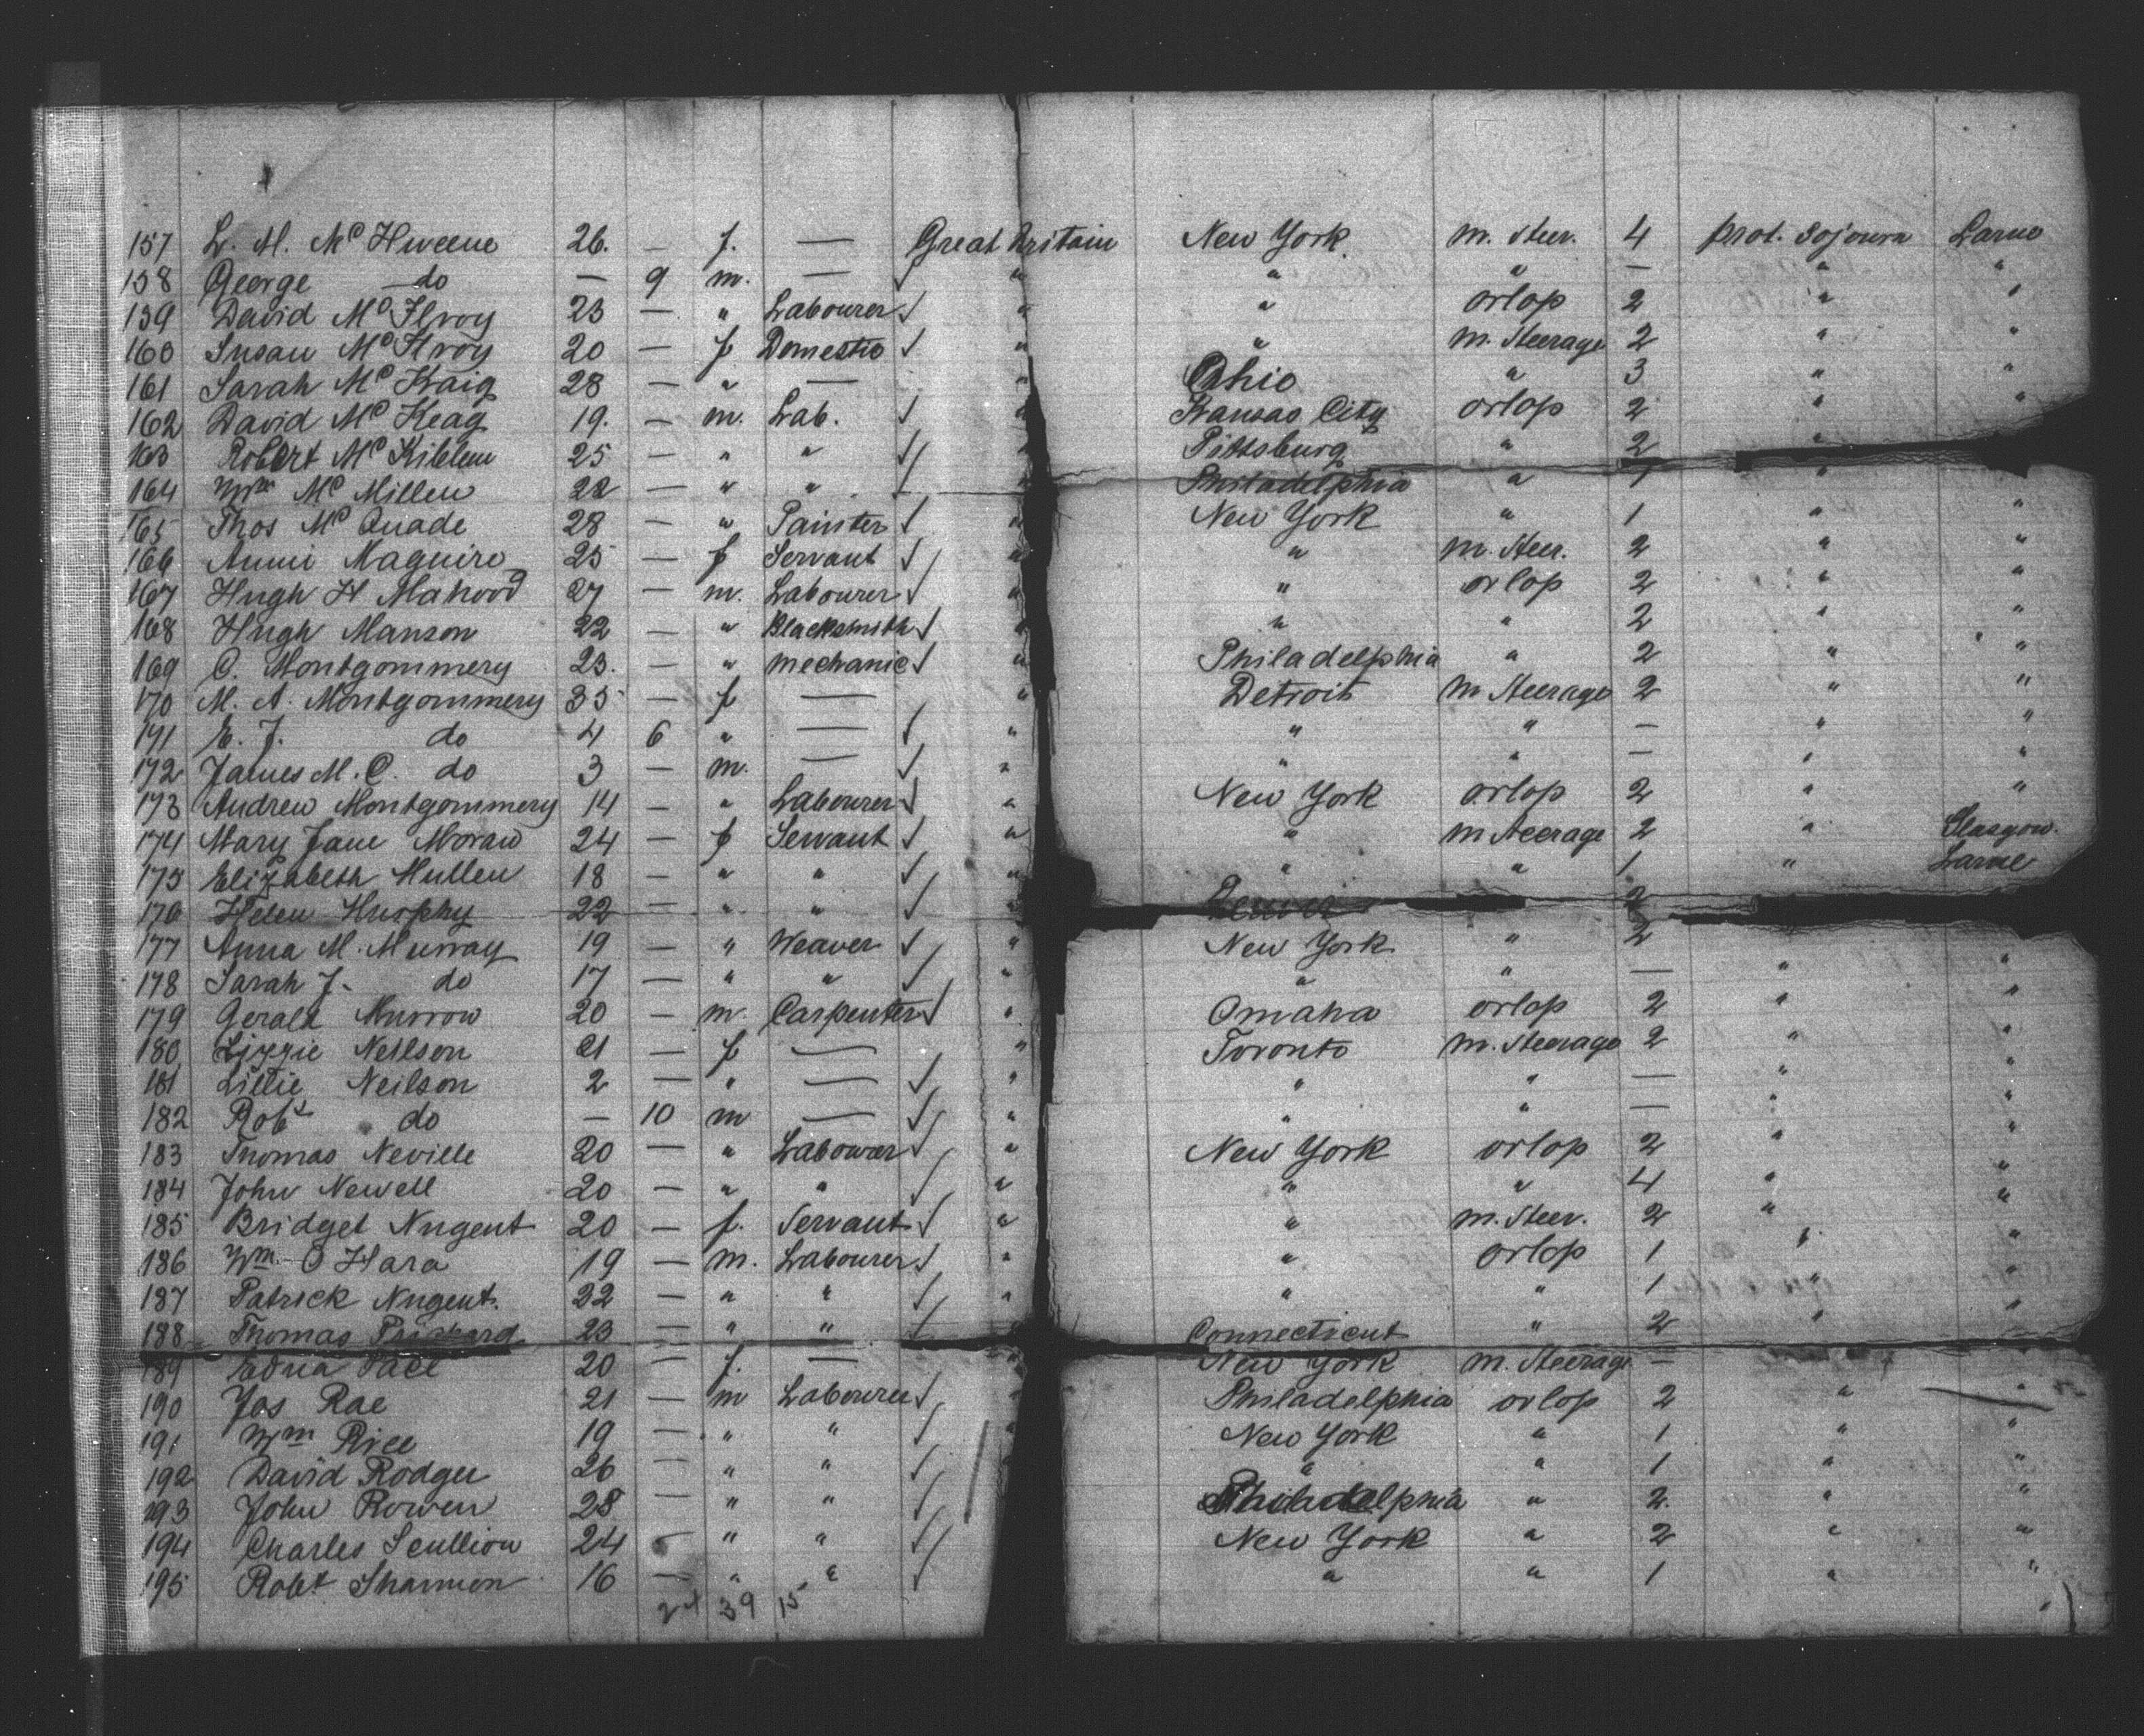 157 L. M. McIlweene 26. — f. — Great Britain New York. m. Steer. 4 prot. Sojourn Larne
158 George do — 9 m. — ✓ " " " — " "
159 David McIlroy 23 — " Labourer ✓ " " orlop 2 " "
160 Susan McIlroy 20 — f Domestic ✓ " " m. Steerage 2 " "
161 Sarah McKraig 28 — " — " Ohio " 3 " "
162 David McKeag 19. — m. Lab. ✓ " Kansas City orlop 2 " "
163 Robert McKiblen 25 — " " ✓ " Pittsburg " 2 "
164 Wm McMillen 22 — " " ✓ " Philadelphia " 1 "
165 Thos McQuade 28 — " Painter ✓ " New York " 1 " "
166 Annie Maguire 25 — f Servant ✓ " " m. Steer. 2 " "
167 Hugh H Mahood 27 — m. Labourer ✓ " " orlop 2 " "
168 Hugh Manson 22 — " Blacksmith ✓ " " " 2 " "
169 C. Montgommery 23. — " mechanic ✓ " Philadelphia " 2 " "
170 M. A. Montgommery 35 — f — " Detroit m Steerage 2 " "
171 E. J. do 4 6 " — ✓ " " " — " "
172 James M. C. do 3 — m. — ✓ " " " — " "
173 Andrew Montgommery 14 — " Labourer ✓ " New York orlop 2 " "
174 Mary Jane Moran 24 — f Servant ✓ " " m Steerage 2 " Glasgow.
175 Elizabeth Mullen 18 — " " ✓ " " " 1 " Larne
176 Helen Murphy 22 — " " ✓ " 2
177 Anna M. Murray 19 — " Weaver ✓ " New York " 2
178 Sarah J. do 17 — " " ✓ " " " — " "
179 Gerald Murrow 20 — m. Carpenter ✓ " Omaha orlop 2 " "
180 Lizzie Neilson 21 — f — " Toronto m. Steerage 2 " "
181 Lillie Neilson 2 — " — ✓ " " " — " "
182 Robt do — 10 m — ✓ " " " — " "
183 Thomas Neville 20 — " Labourer ✓ " New York orlop 2 " "
184 John Newell 20 — " " ✓ " " " 4 " "
185 Bridget Nugent 20 — f. Servant ✓ " " m. Steer. 2 " "
186 Wm O Hara 19 — m. Labourer ✓ " " orlop 1 " "
187 Patrick Nugent. 22 — " " ✓ " " " 1 " "
188 Thomas Prichard 23 — " " ✓ " Connecticut " 2 " "
189 Edna 20 — f. — " New York m. Steerage —
190 Jas Rae 21 — m Labourer ✓ " Philadelphia orlop 2 " "
191 Wm Rice 19 — " " ✓ " New York " 1 " "
192 David Rodger 26 — " " ✓ " " 1 " "
193 John Rowen 28 — " " ✓ Philadelphia " 2. " "
194 Charles Scullion 24 — " " ✓ New York " 2 " "
195 Robt Shannon 16 — " " ✓ " " 1 " "
39 15